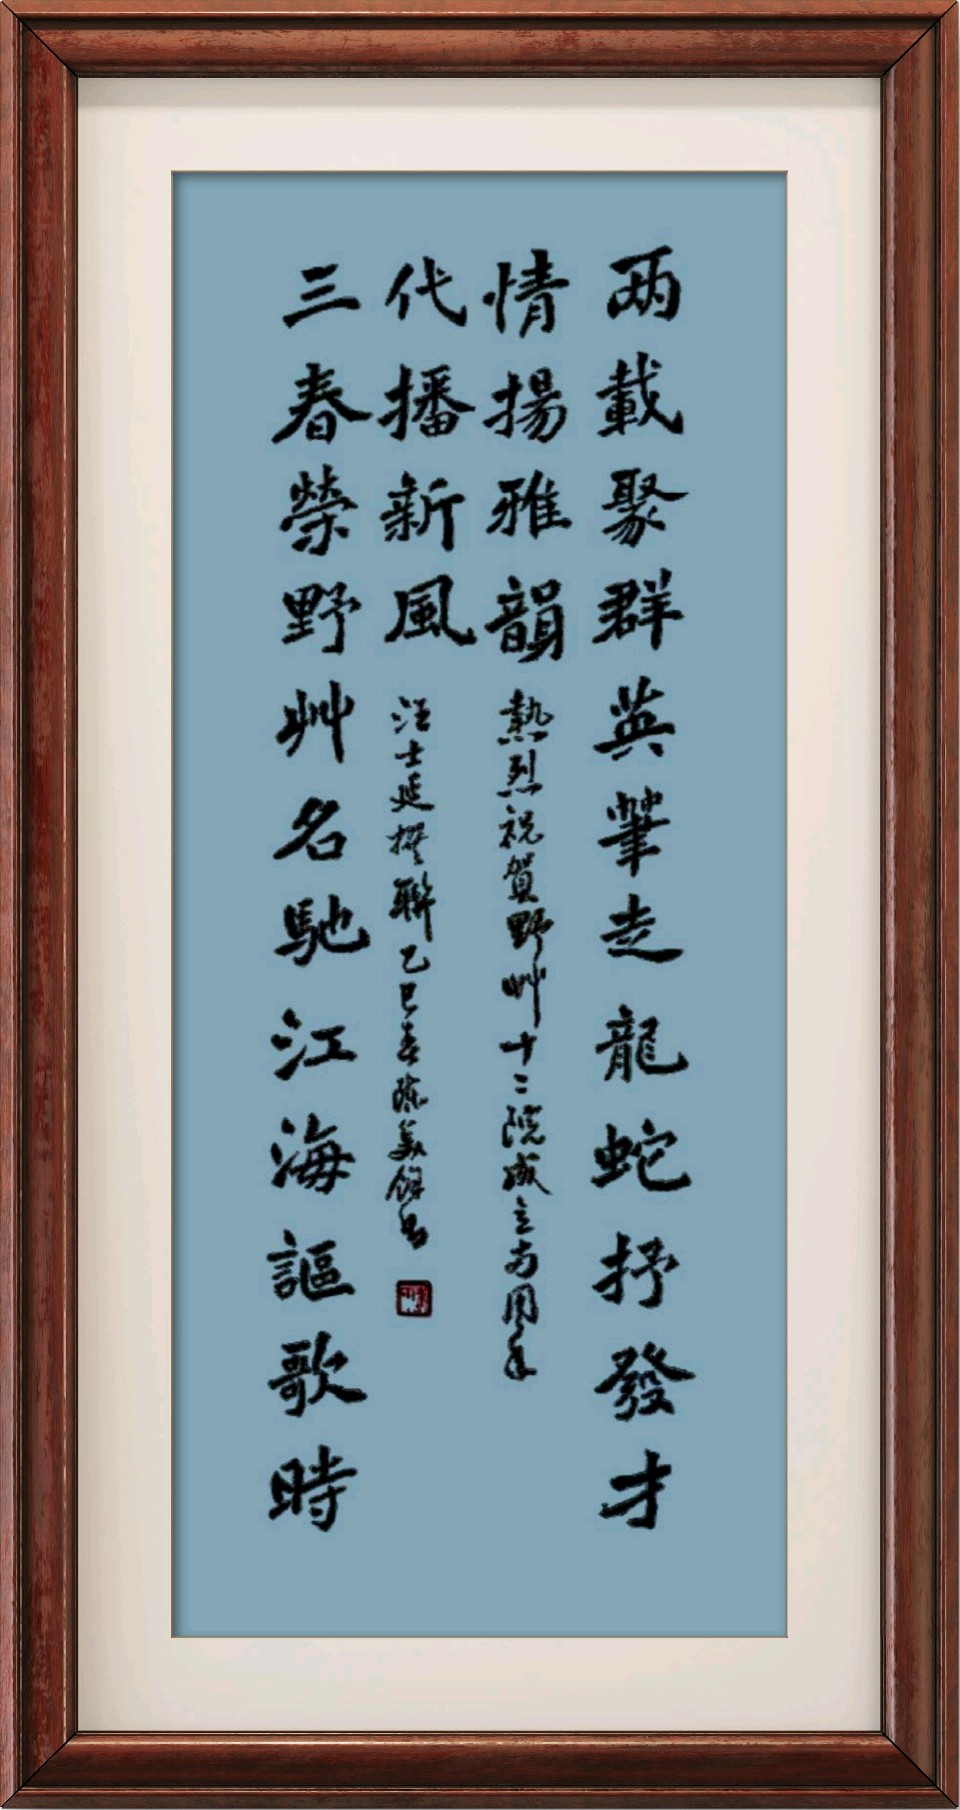 两載聚群英筆走龍蛇抒發才
情揚雅韻
熱烈祝賀野艸十二院成立两周年
三春榮野艸名馳江海謳歌時
代播新風
汪士延撰聯乙巳春陳書